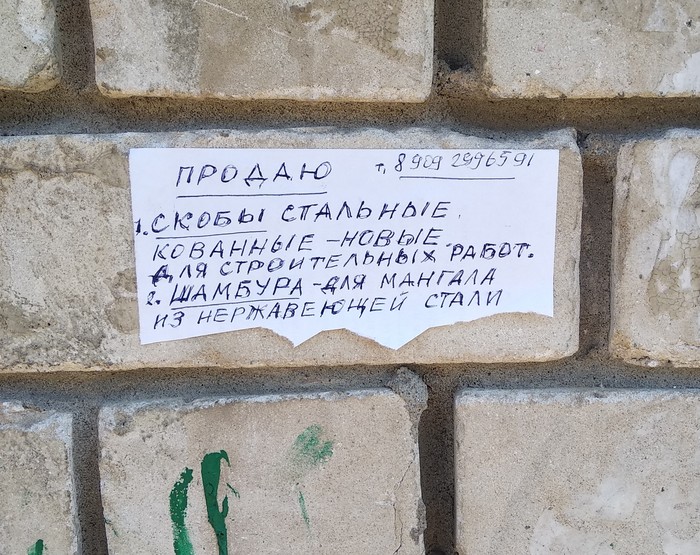 ПРОДАЮ т, 8 909 2996591
1. СКОБЫ СТАЛЬНЫЕ
КОВАННЫЕ – НОВЫЕ
ДЛЯ СТРОИТЕЛЬНЫХ РАБОТ.
2. ШАМБУРА – ДЛЯ МАНГАЛА
ИЗ НЕРЖАВЕЮЩЕЙ СТАЛИ